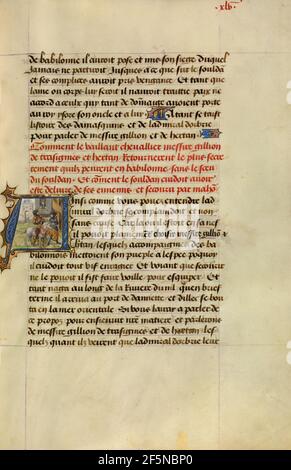 .xlv.
de babilonne il avoit pose et mis son siege duquel
jamais ne partiroit jusques a ce que sur le souldan
et ses complices auroit pris vengance. Et tant que
lame ou corps lui seroit il nauroit traittie paix ne
accord a ceulx qui tant de dommaige avoient porte
au roy son oncle et a lui Atant se taist
listoire des damasquins et de ladmiral dorbrie
pour parler de messire gillion et de hertan
Comment le vaillant chevallier messire gillion
de trasignies et hertan retournerent le plus secre
tement quilz peurent en babilonne sans le sceu
du souldan. Et comment le souldan cuidoit avoir
este delivre de ses ennemis et secouru par mahom
Ainsi comme vous pouez entendre lad
miral dorbrie se complaindoit et non
sans cause
il povoit plainement choisir messire gillion &
hertan lesquelz acompaigniez des ba
bilonnois mettoient son pueple a lespee pour quoy
il cuidoit tout vif enragier. Et voiant que secourir
ne le povoit il fist faire voille pour esquiper. Et
tant naga au long de la riviere du nil que en brief
terme il arriva au port de damiette et dillec se bou
ta en la mer orientale Si vous lairay a parler de
ce propos pour ensievir nostre matiere et parlerons
de messire gillion de trasignies et de hertan les
quelz quant ilz veirent que ladmiral dorbrie leur
alamy
Image ID: 2F5NBP0
www.alamy.com